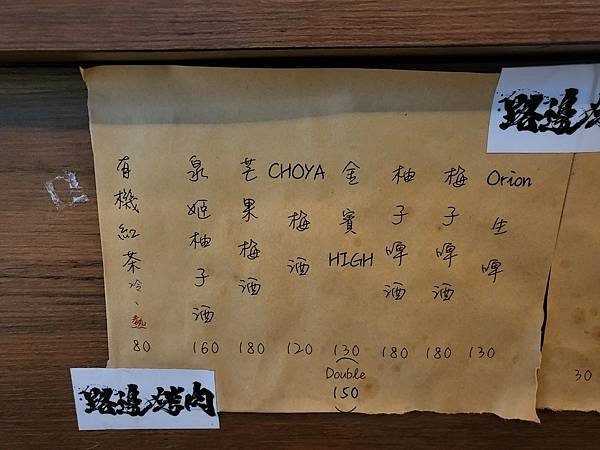 Orion生啤 130
梅子啤酒 180
柚子啤酒 180
金賓HIGH 130 (Double 150)
CHOYA梅酒 120
芒果梅酒 180
泉姬柚子酒 160
有機紅茶冷、熱 80
路邊烤肉
路邊烤
30